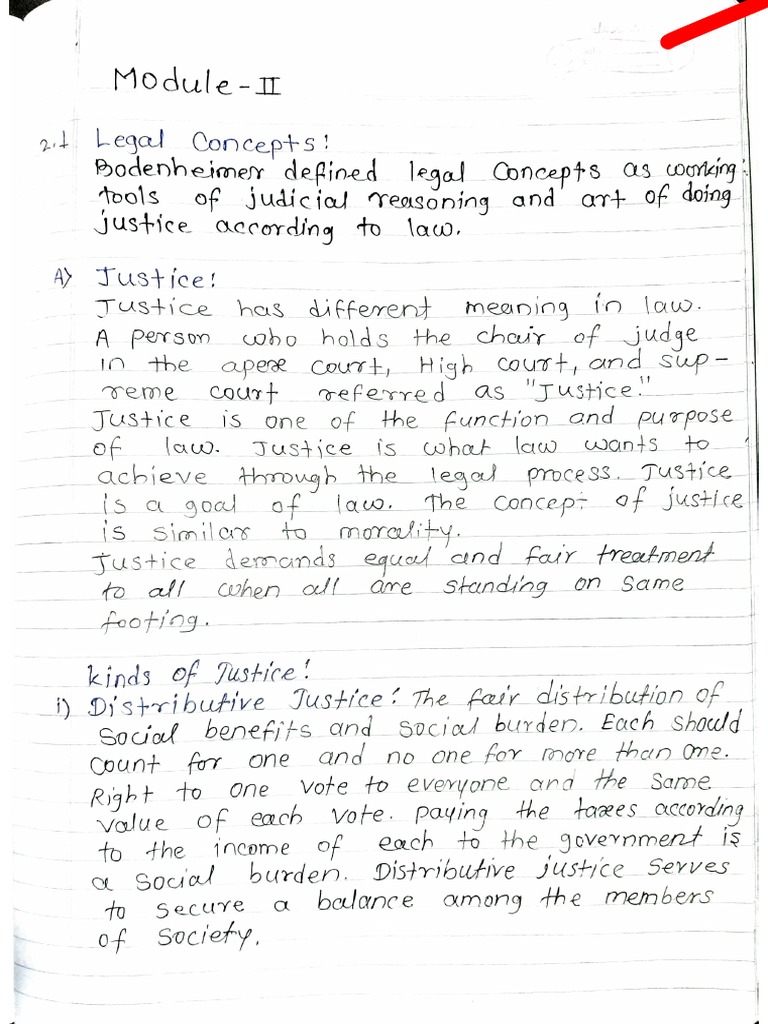 Module - II
2.1 Legal Concepts:
Bodenheimer defined legal Concepts as working
tools of judicial reasoning and art of doing
justice according to law.
A) Justice:
Justice has different meaning in law.
A person who holds the chair of judge
in the apexe court, High court, and sup-
reme court referred as "Justice."
Justice is one of the function and purpose
of law. Justice is what law wants to
achieve through the legal process. Justice
is a goal of law. The concept of justice
is similar to morality.
Justice demands equal and fair treatment
to all when all are standing on same
footing.
kinds of Justice:
i) Distributive Justice: The fair distribution of
social benefits and social burden. Each should
count for one and no one for more than one.
Right to one vote to everyone and the same
value of each vote. paying the taxes according
to the income of each to the government is
a social burden. Distributive justice serves
to secure a balance among the members
of society.